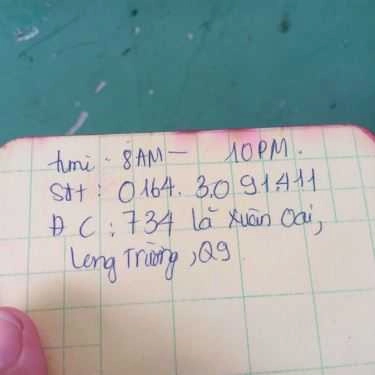 tımi : 8AM – 10PM.
Sđt : 0164.3.091.411
Đ C : 734 lã Xuân Oai,
Lêng Trường, Q9